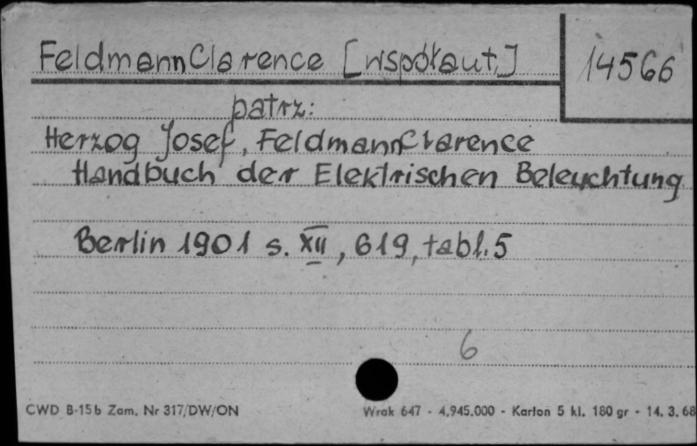 Feldmann Clarence [współaut.] 14566
patrz:
Herzog Josef, Feldmann Clarence
Handbuch der Elektrischen Beleuchtung
Berlin 1901 s. XII, 619, tabl. 5
6
CWD B-15b Zam. Nr 317/DW/ON Wrak 647 - 4,945.000 - Karton 5 kl. 180 gr - 14. 3. 68